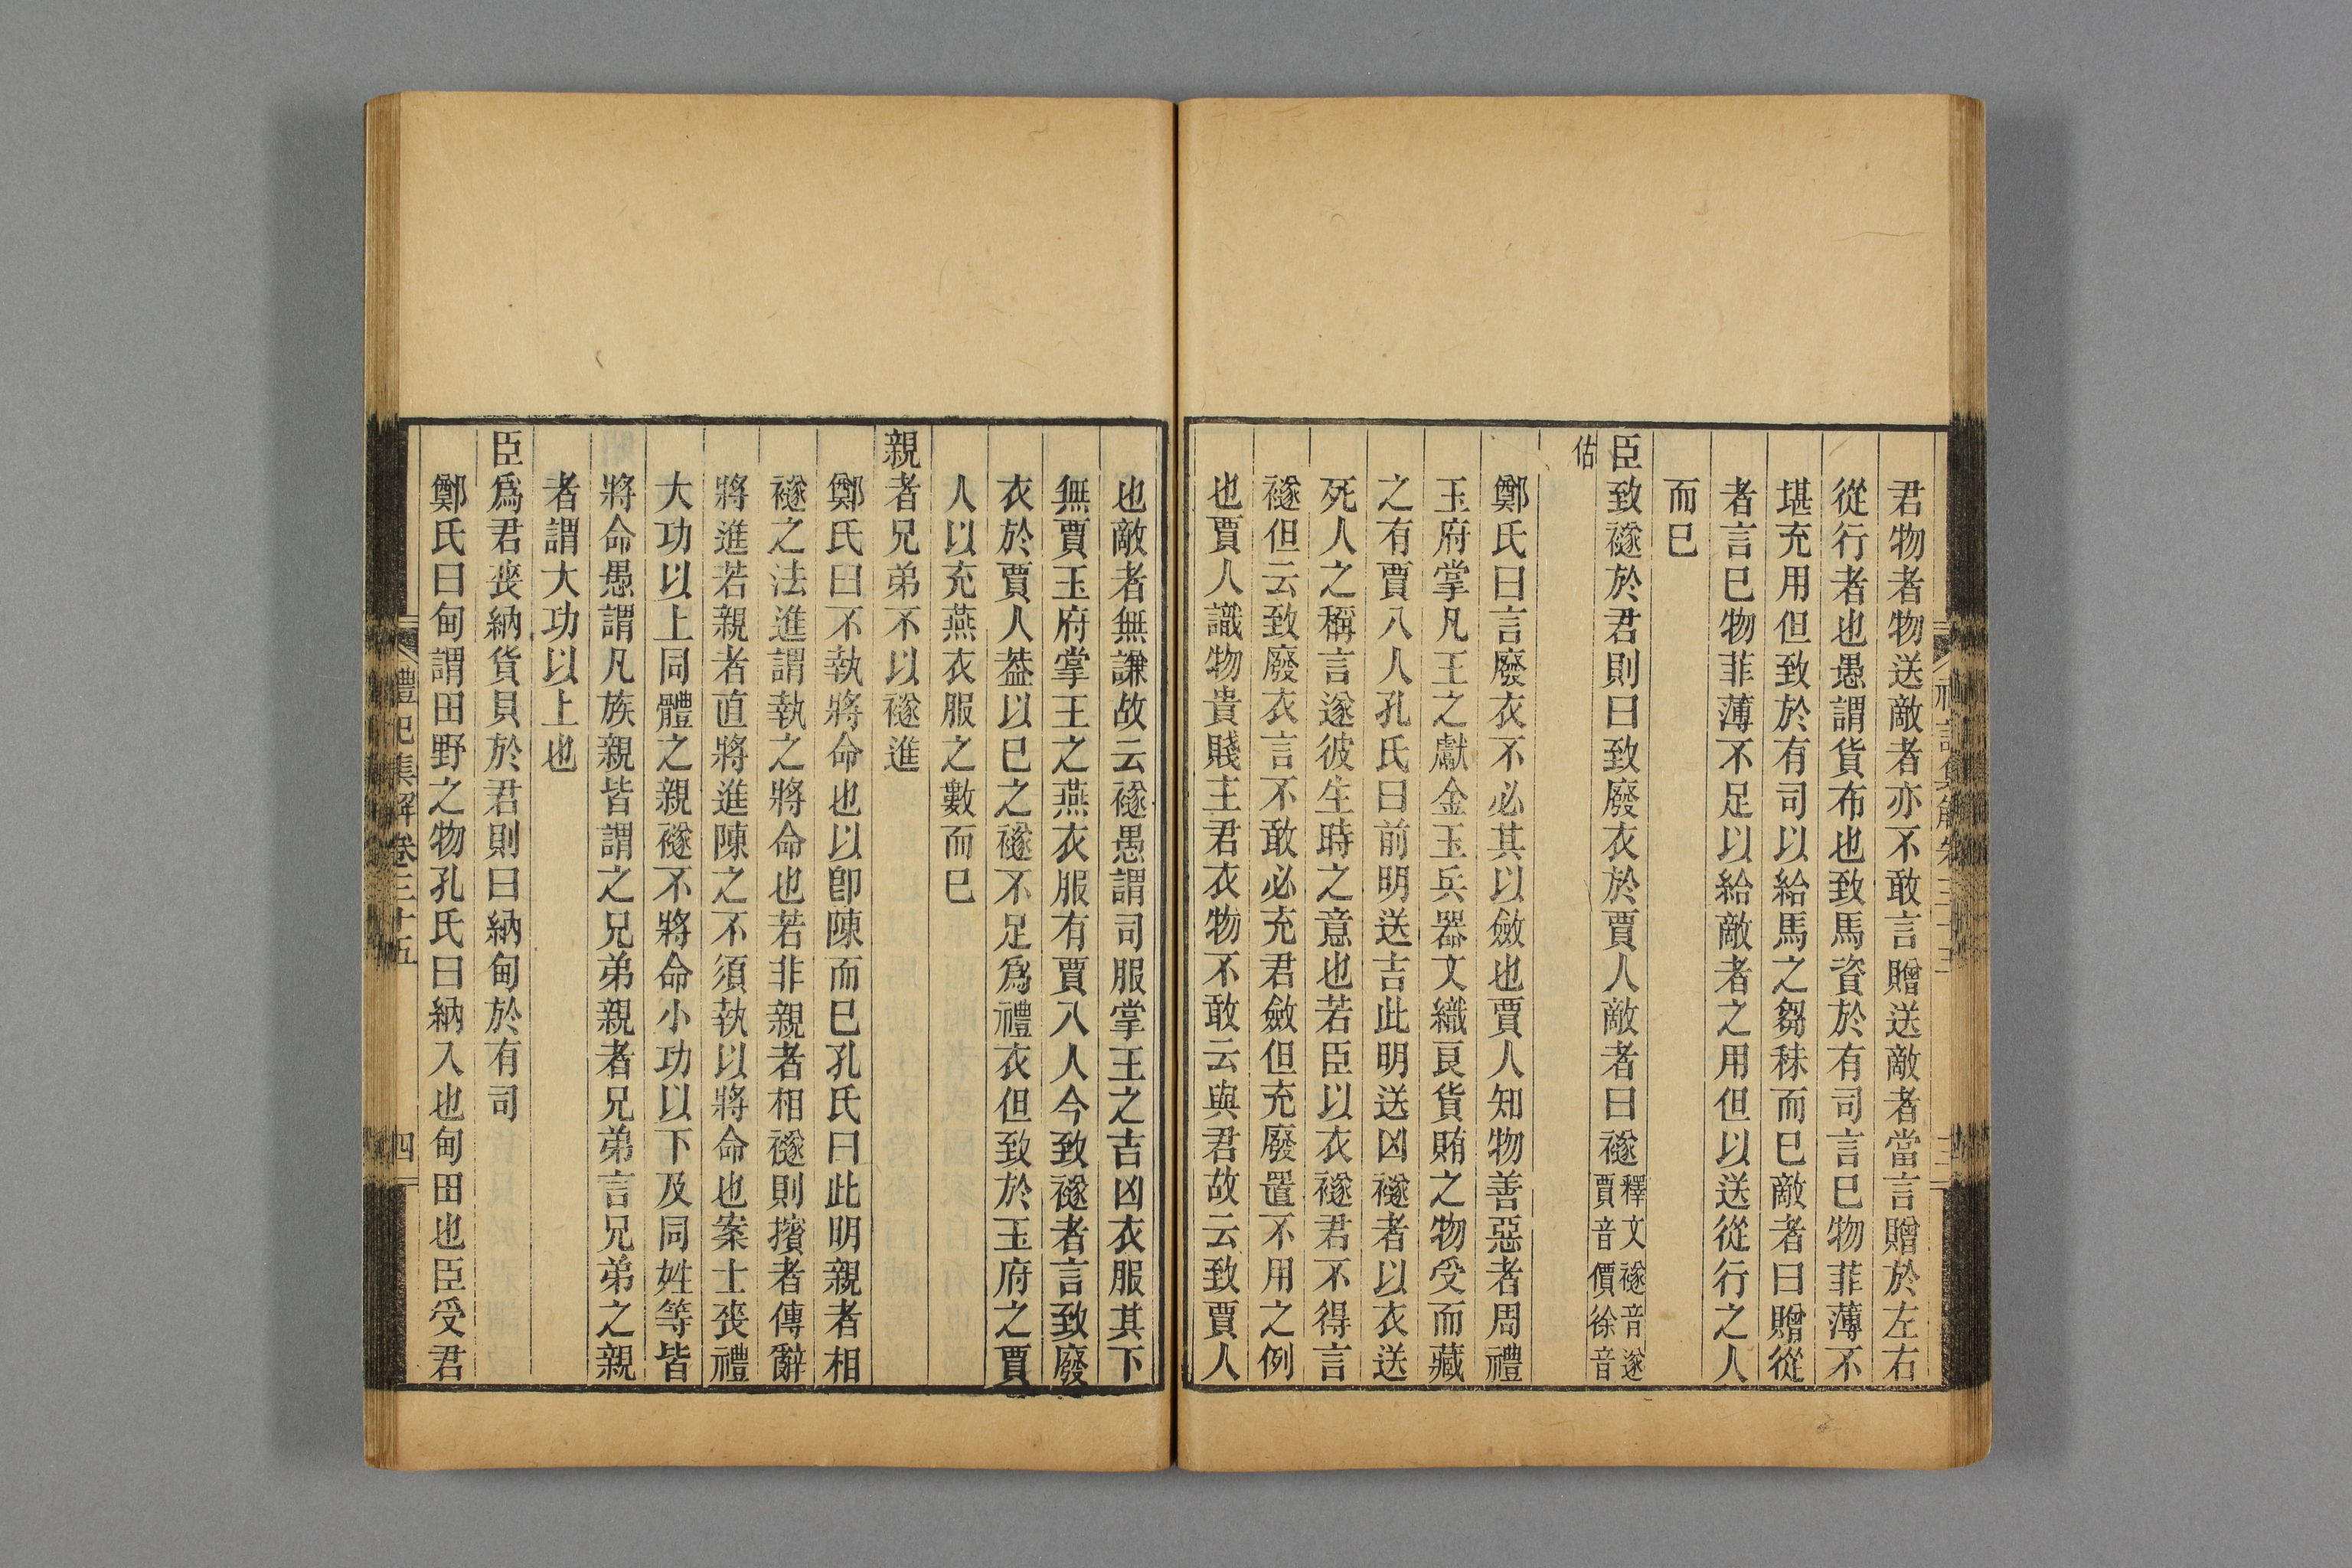 君物者物送敵者亦不敢言贈送敵者當言贈於左右
從行者也愚謂貨布也致馬資於有司言已物菲薄不
堪充用但致於有司以給馬之芻秣而已敵者曰贈從
者言已物菲薄不足以給敵者之用但以送從行之人
而已
臣致襚於君則曰致廢衣於賈人敵者曰襚釋文襚音遂
賈音價徐音
估
鄭氏曰言廢衣不必其以斂也賈人知物善惡者周禮
玉府掌凡王之獻金玉兵器文織良貨賄之物受而藏
之有賈八人孔氏曰前明送吉此明送凶襚者以衣送
死人之稱言遂彼生時之意也若臣以衣襚君不得言
襚但云致廢衣言不敢必充君斂但充廢置不用之例
也賈人識物貴賤主君衣物不敢云與君故云致賈人
也敵者無謙故云襚愚謂司服掌王之吉凶衣服其下
無賈玉府掌王之燕衣服有賈八人今致襚者言致廢
衣於賈人葢以已之襚不足爲禮衣但致於玉府之賈
人以充燕衣服之數而已
親者兄弟不以襚進
鄭氏曰不執將命也以卽陳而已孔氏曰此明親者相
襚之法進謂執之將命也若非親者相襚則擯者傳辭
將進若親者直將進陳之不須執以將命也案士喪禮
大功以上同體之親襚不將命小功以下及同姓等皆
將命愚謂凡族親皆謂之兄弟親者兄弟言兄弟之親
者謂大功以上也
臣爲君喪納貨貝於君則曰納甸於有司
鄭氏曰甸謂田野之物孔氏曰納入也甸田也臣受君
禮記集解卷三十五
四